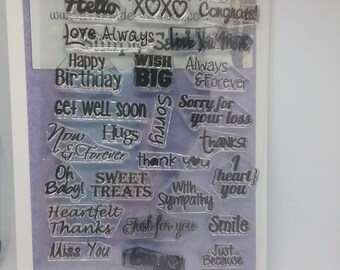 Hello
XOXO
Congrats!
Love Always
Love You More
Happy
Birthday
WISH
BIG
Always
& Forever
Get Well Soon
Sorry
Sorry for
your loss
Now
& Forever
Hugs
thanks!
thank you
I
heart
you
Oh
Baby!
SWEET
TREATS
With
Sympathy
Heartfelt
Thanks
Just for you
Smile
Miss You
Just
Because